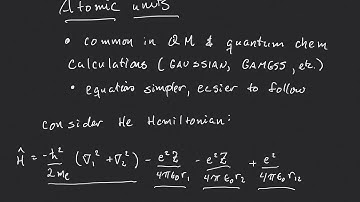 Atomic units
• common in QM & quantum chem
calculations (GAUSSIAN, GAMESS, etc.)
• equations simpler, easier to follow
consider He Hamiltonian:
Ĥ = -ħ²/2me (∇₁² + ∇₂²) - e²Z/4πε₀r₁ - e²Z/4πε₀r₂ + e²/4πε₀r₁₂